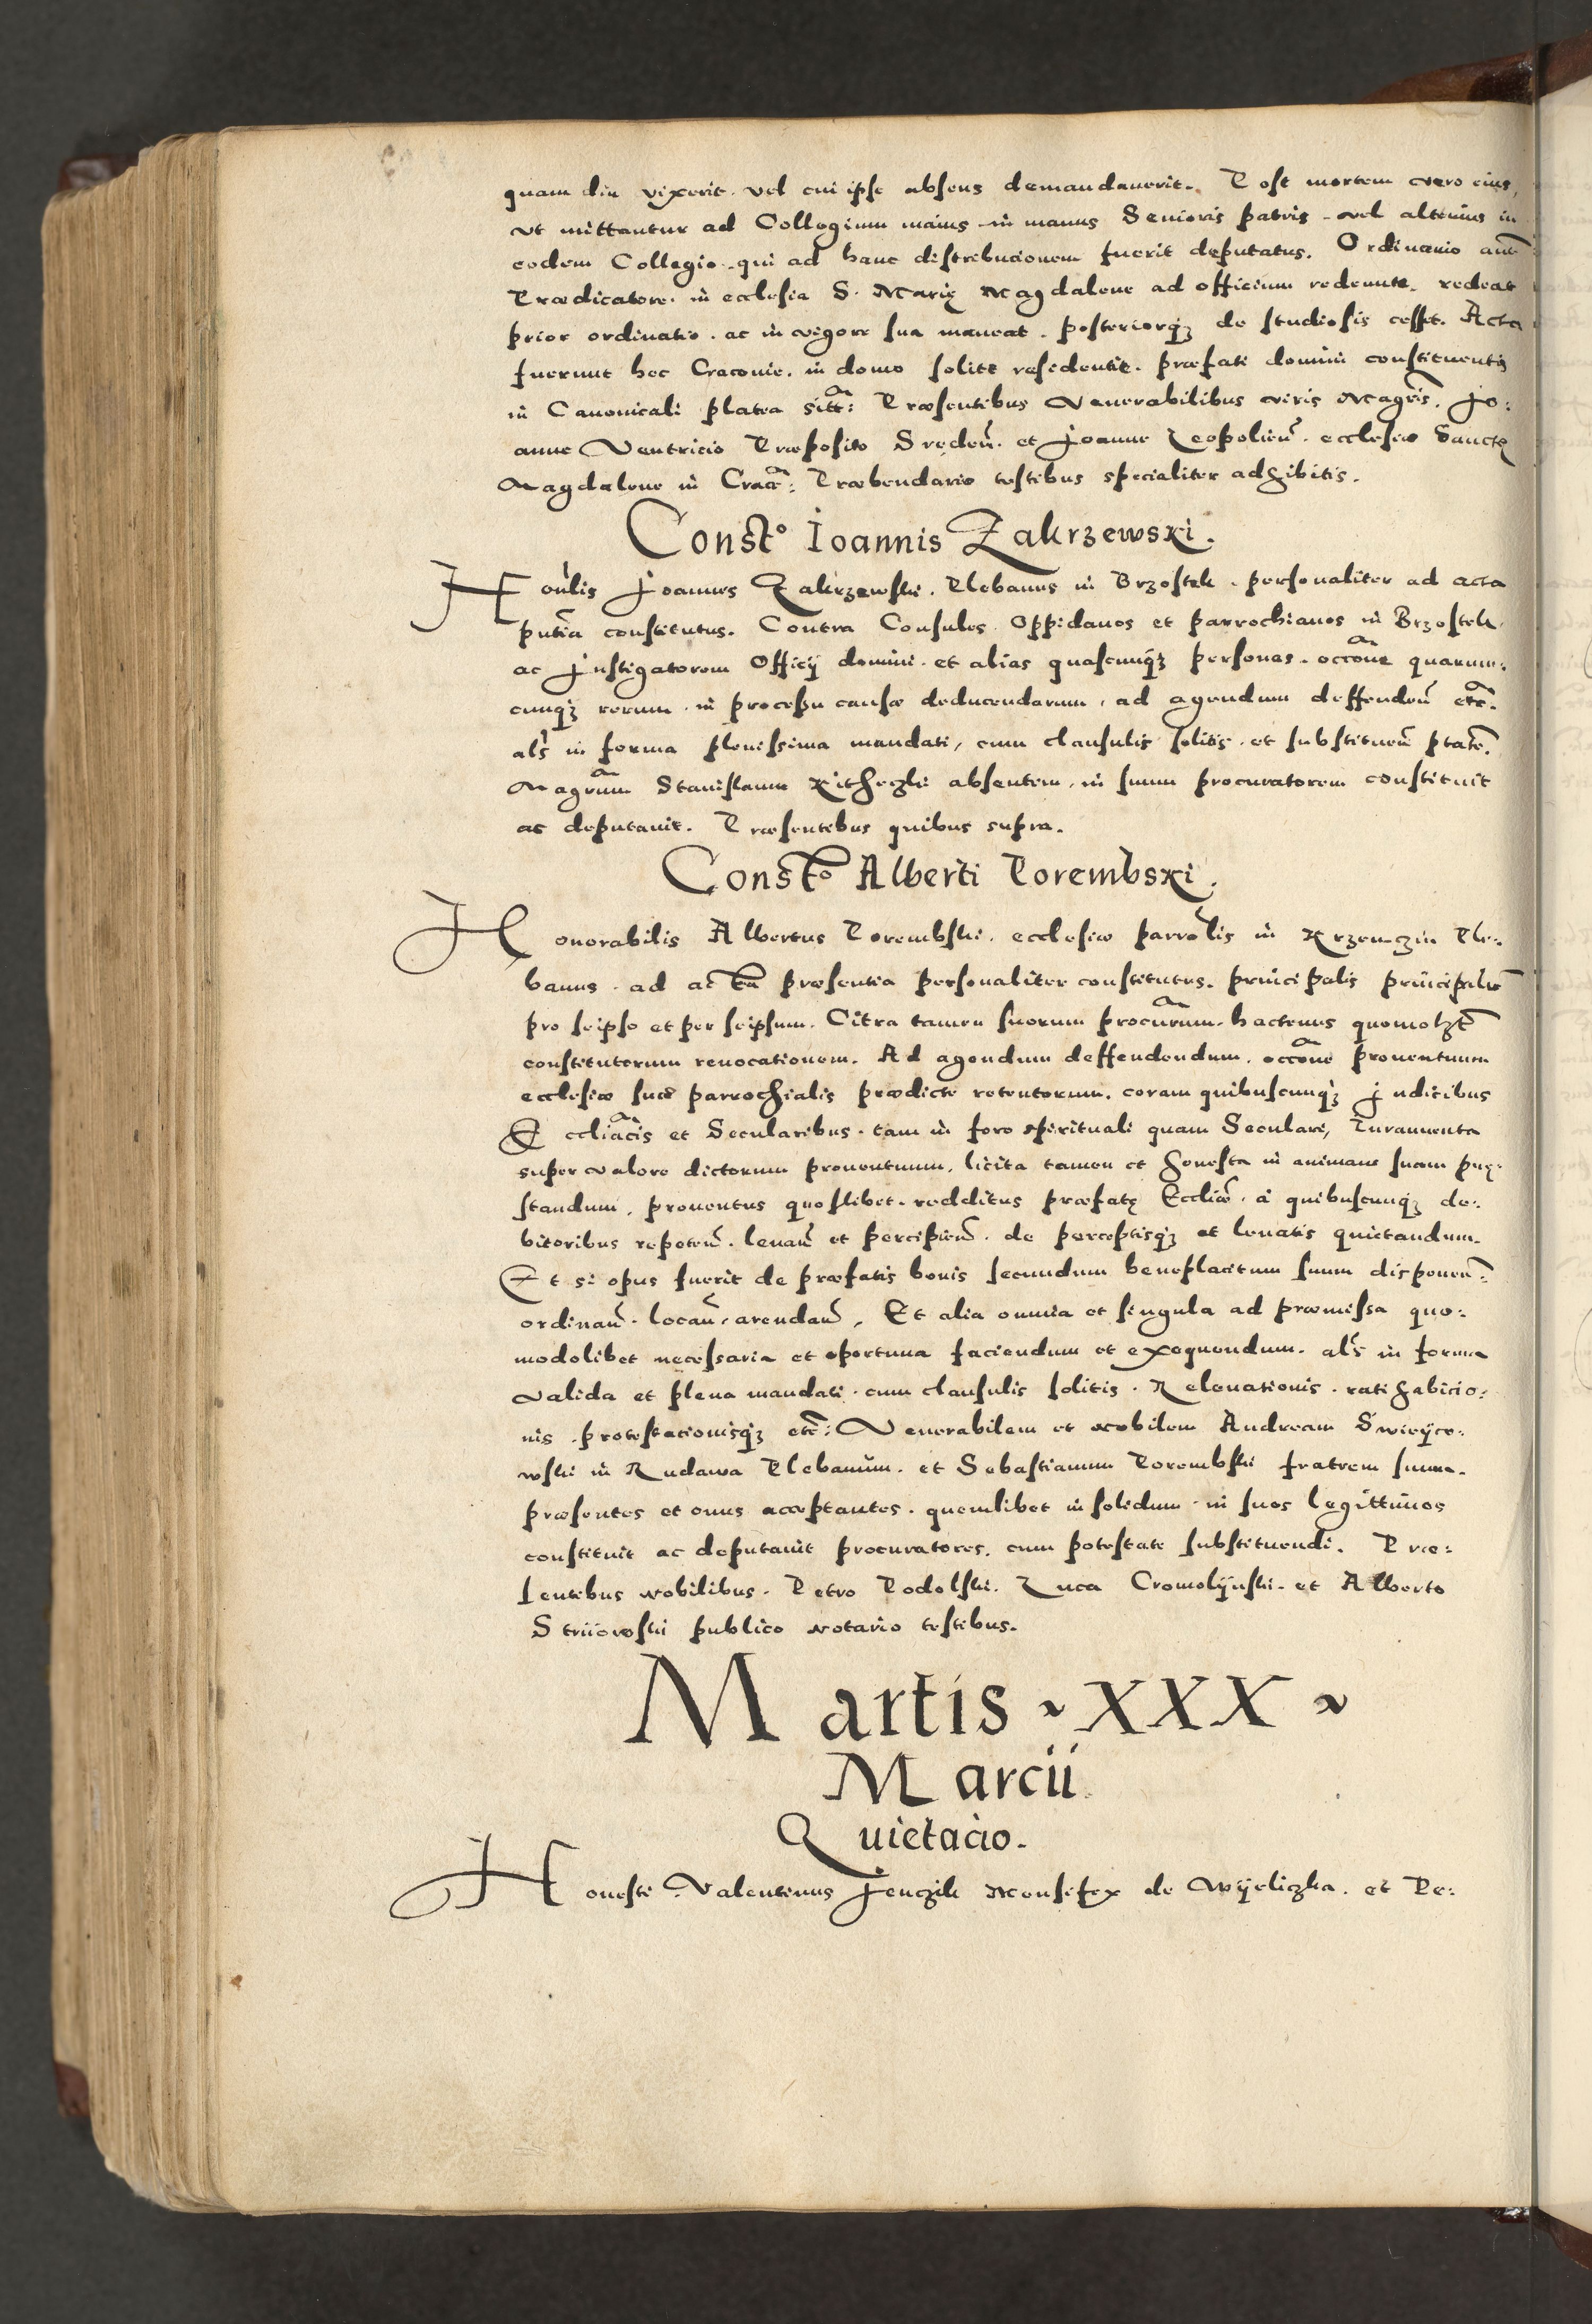 quam diu vixerit. vel cui ipse absens demandaverit. Post mortem vero eius,
ut mittantur ad Collegium maius in manus Senioris patris. vel alterius in
eodem Collegio. qui ad hanc distribucionem fuerit deputatus. Ordinario aut̃
Prædicatore. in ecclesia S. Marię Magdalene ad officium redeunte. redeat
prior ordinatio. ac in vigore suo maneat. posteriorq₃ de studiosis cesset. Acta
fuerunt hec Cracovie. in domo solite residentie. præfati domini constituentis
in Canonicali platea sitt̃: Præsentibus Venerabilibus viris Magr̃is. Jo:
anne Ventricio Præposito Sreden̄. et Joanne Leopolien̄. ecclesiæ Sanctę
Magdalene in Crac̃: Præbendario testibus specialiter adhibitis.
Const.º Ioannis Zakrzewski.
Hon̄lis Joannes Zakrzewski. Plebanus in Brzostek. personaliter ad acta
pñtia constitutus. Contra Consules Oppidanos et parrochianos in Brzostek.
ac Instigatorem Officij domini. et alias quascunq₃ personas. occõne quarum:
cunq₃ rerum. in processu causæ deducendarum, ad agendum deffenden̄ etc̃.
als̃ in forma plenissima mandati, cum clausulis solitis. et substituen̄ ptate.
Magr̃um Stanislaum absentem. in suum procuratorem constituit
ac deputavit. Præsentibus quibus supra.
Const.º Alberti Porembski.
Honorabilis Albertus Porembski. ecclesiæ parrõlis in Krzenczin Ple:
banus. ad acta præsentia personaliter constitutus. principalis principalr̃
pro seipso et per seipsum. Citra tamen suorum procur̃um. hactenus quomolꝫt
constitutorum revocationem. Ad agendum deffendendum. occõne proventuum
ecclesiæ suæ parrochialis prædicte retentorum. coram quibuscunq₃ Judicibus
Eccliãcis et Secularibus. tam in foro spirituali quam Seculari, Iuramenta
super valore dictorum proventuum, licita tamen et honesta in animam suam pręs:
standum, proventus quoslibet. redditus præfatę Eccliæ. à quibuscunq₃ de:
bitoribus repeten̄. levan̄ et percipien̄. de perceptisq₃ et levatis quietandum.
Et si opus fuerit de præfatis bonis secundum beneplacitum suum disponen̄:
ordinan̄. locan̄. arendan̄. Et alia omnia et singula ad præmissa quo:
modolibet necessaria et oportuna faciendum et exequendum. als̃ in forma
valida et plena mandati. cum clausulis solitis. Relevationis. ratihabicio:
nis. protestationisq₃ etc̃: Venerabilem et nobilem Andream Swieÿco:
wski in Rudawa Plebanum. et Sebastianum Porembski fratrem suum.
præsentes et onus acceptantes. quemlibet in solidum. in suos legittimos
constituit ac deputavit procuratores. cum potestate substituendi. Præ:
sentibus nobilibus. Petro Podolski. Luca Cromolÿnski. et Alberto
publico notario testibus.
Martis ~ XXX ~
Marcii
Quietacio.
Honesti Valentinus Jenczik Mensifex de Wÿeliczka. et Pe: